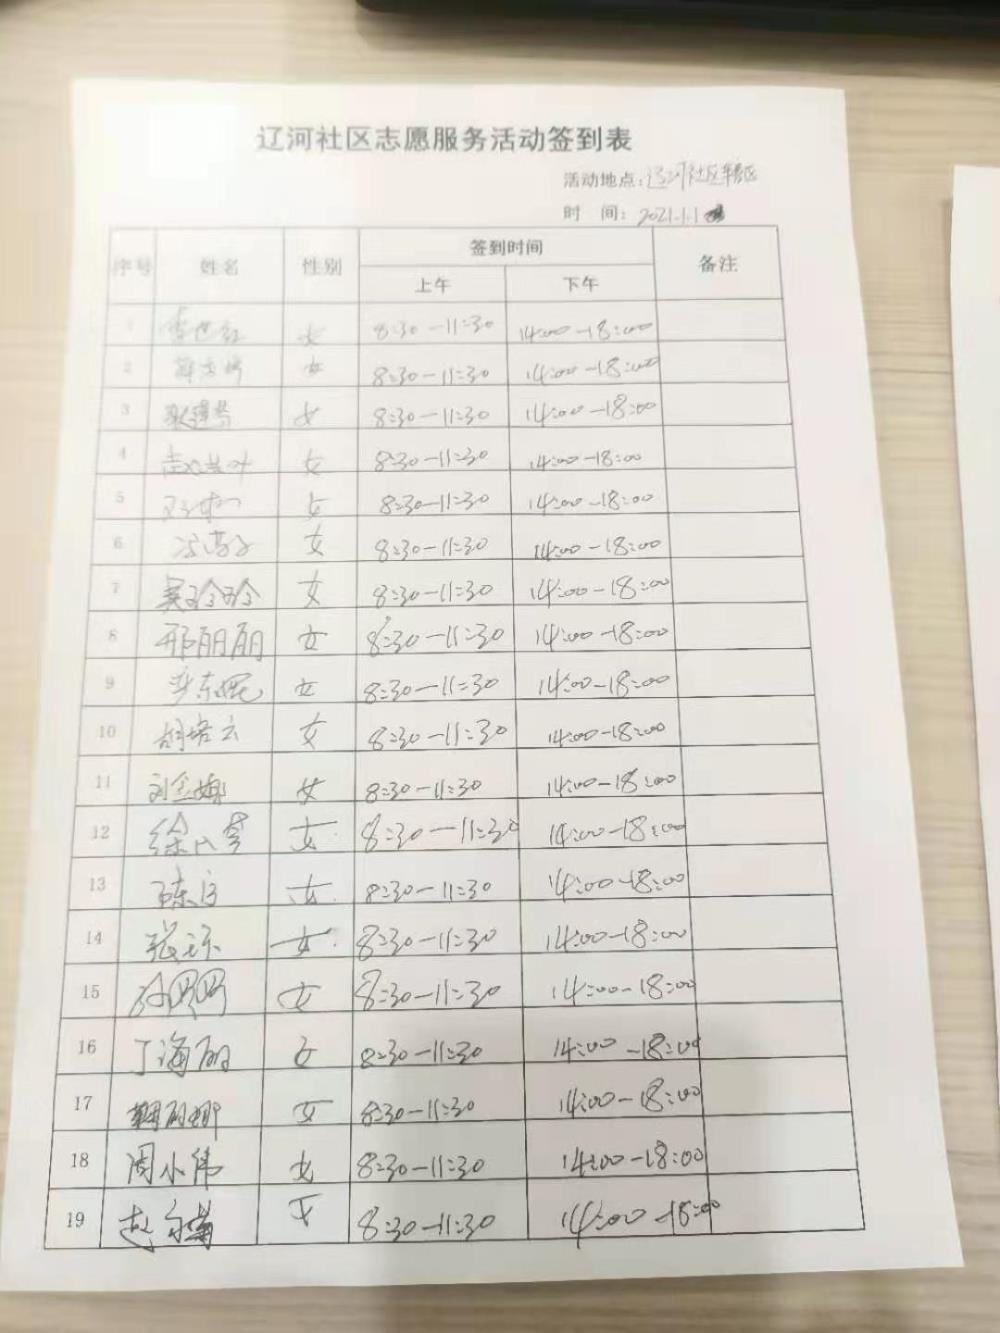 辽河社区志愿服务活动签到表
活动地点:辽河社区辖区
时 间: 2021.1.1
序号 姓名 性别 签到时间 备注
上午 下午
1 女 8:30-11:30 14:00-18:00
2 女 8:30-11:30 14:00-18:00
3 女 8:30-11:30 14:00-18:00
4 女 8:30-11:30 14:00-18:00
5 女 8:30-11:30 14:00-18:00
6 女 8:30-11:30 14:00-18:00
7 吴玲玲 女 8:30-11:30 14:00-18:00
8 邢丽丽 女 8:30-11:30 14:00-18:00
9 女 8:30-11:30 14:00-18:00
10 女 8:30-11:30 14:00-18:00
11 刘金娜 女 8:30-11:30 14:00-18:00
12 女 8:30-11:30 14:00-18:00
13 女 8:30-11:30 14:00-18:00
14 女 8:30-11:30 14:00-18:00
15 女 8:30-11:30 14:00-18:00
16 丁海丽 女 8:30-11:30 14:00-18:00
17 女 8:30-11:30 14:00-18:00
18 周小伟 女 8:30-11:30 14:00-18:00
19 女 8:30-11:30 14:00-18:00